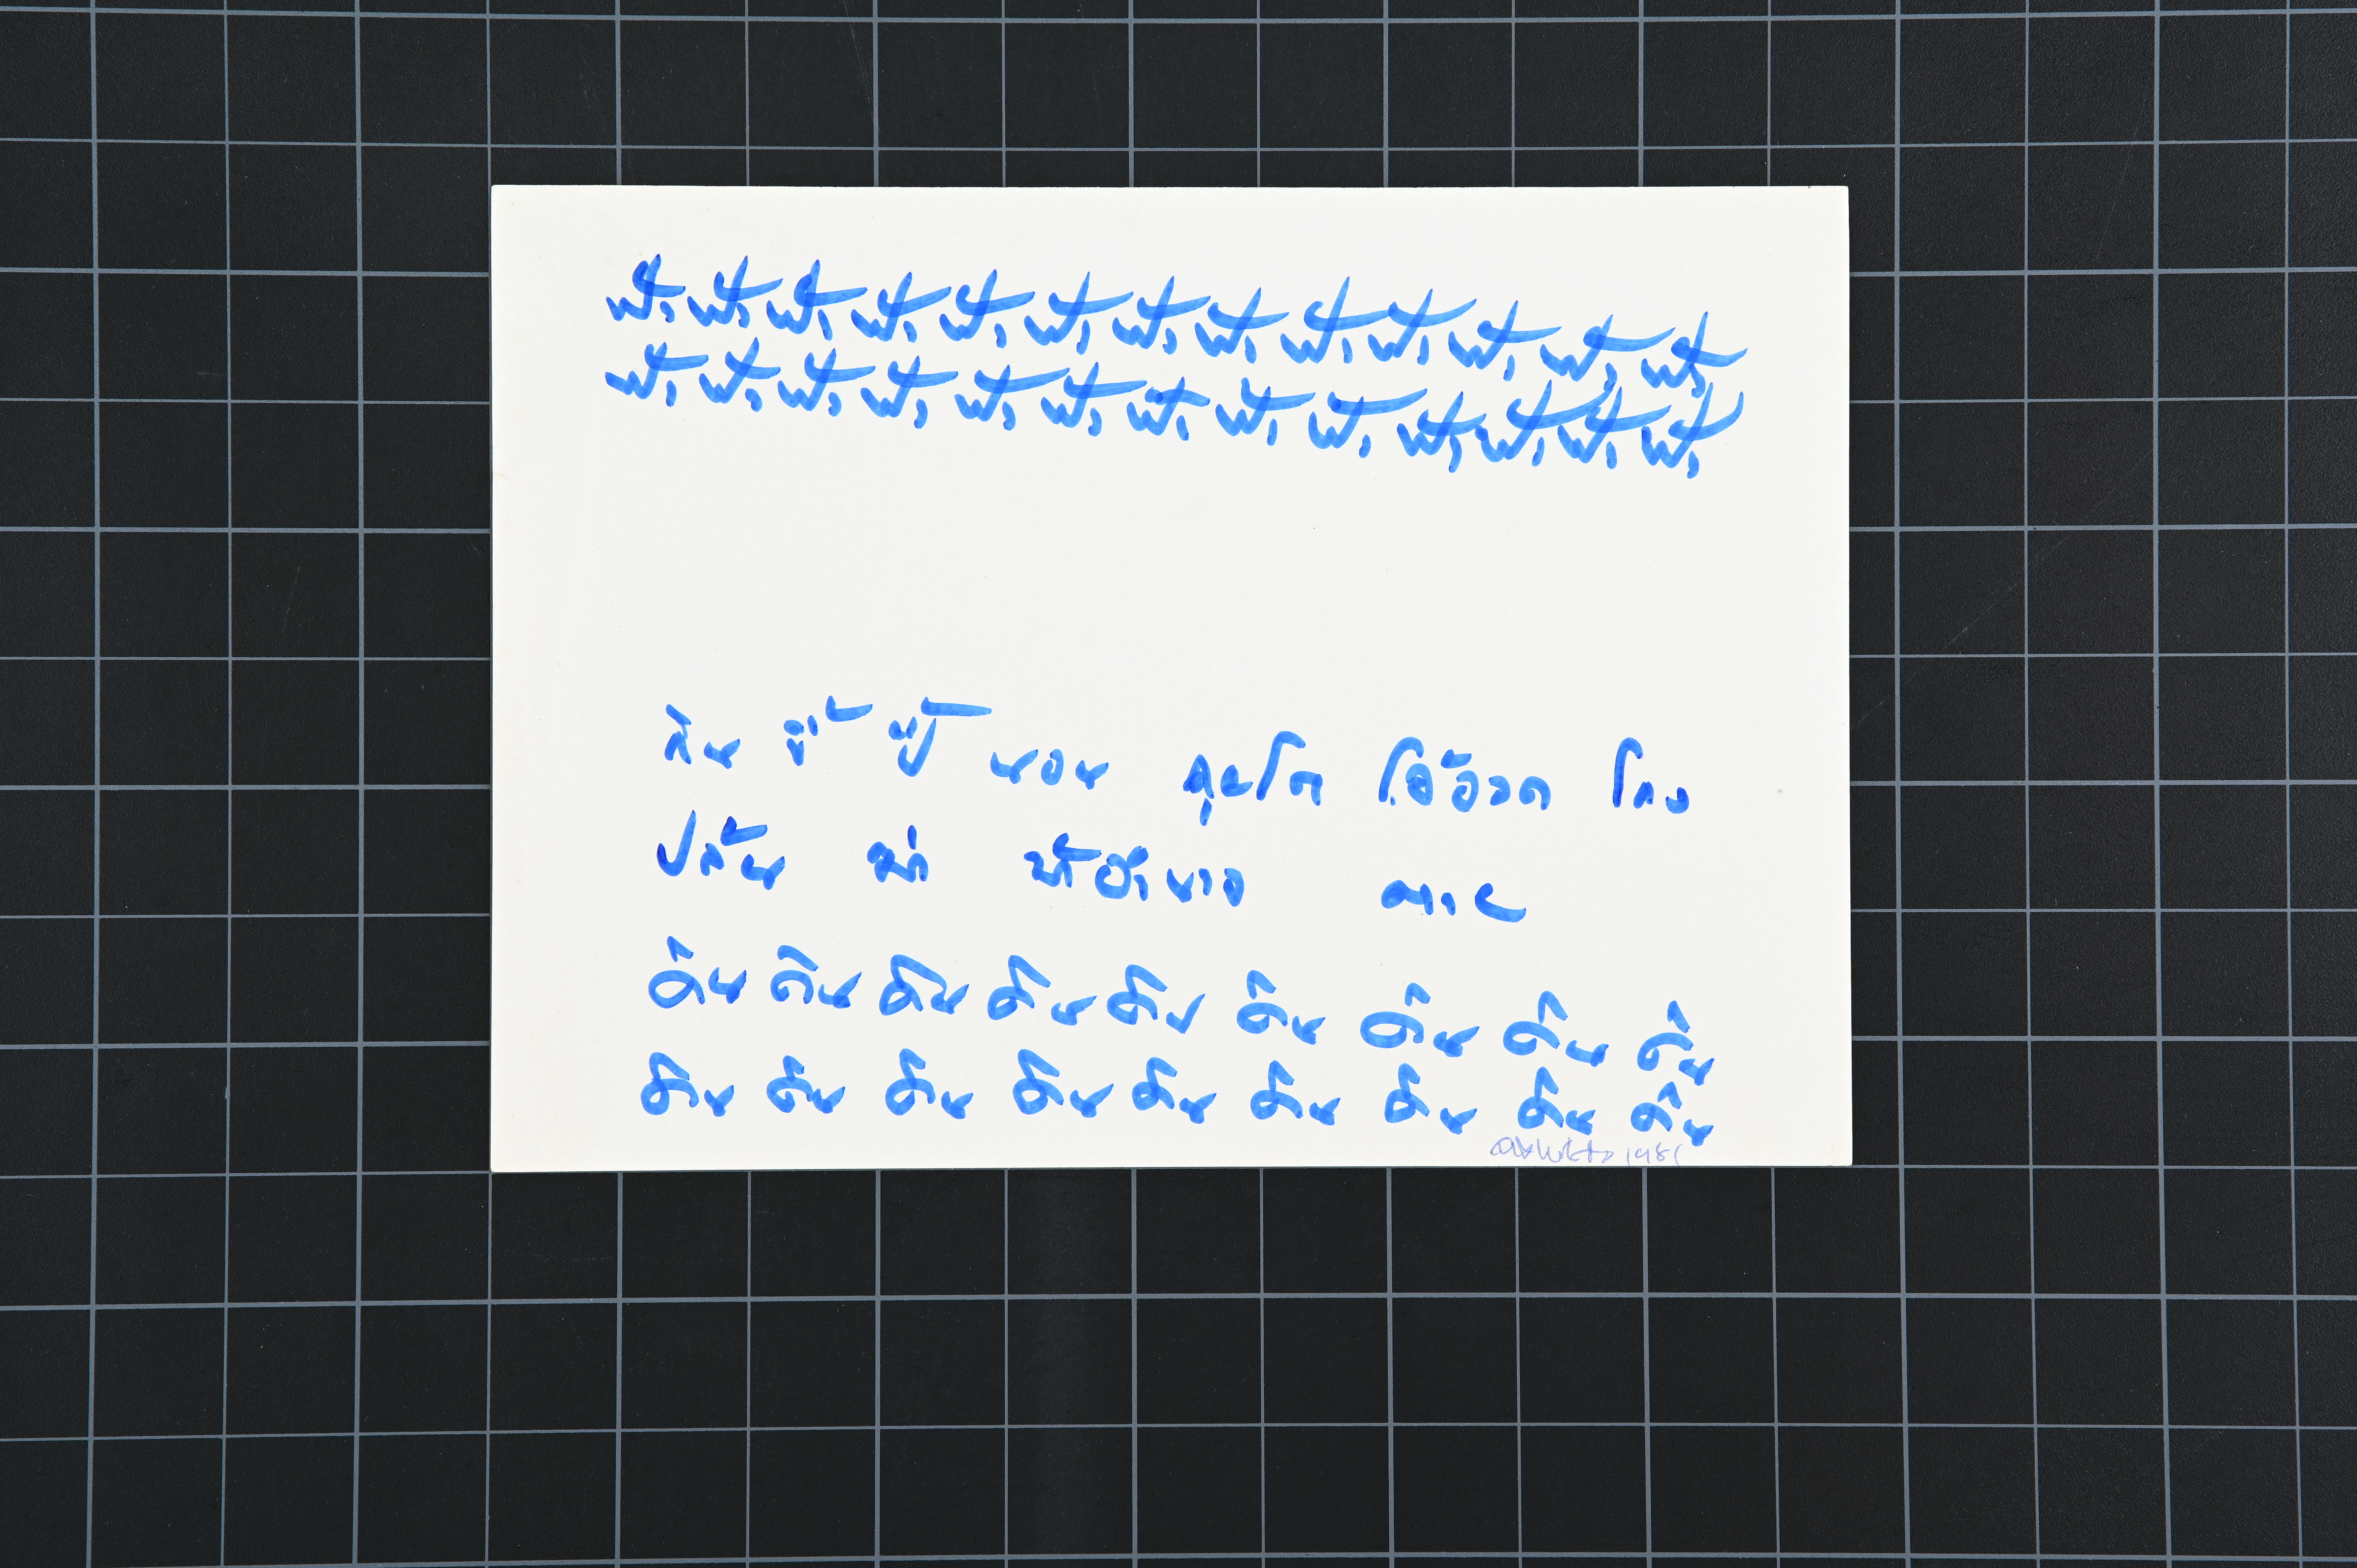 ฟ้า ฟ้า ฟ้า ฟ้า ฟ้า ฟ้า ฟ้า ฟ้า ฟ้า ฟ้า ฟ้า ฟ้า ฟ้า
ฟ้า ฟ้า ฟ้า ฟ้า ฟ้า ฟ้า ฟ้า ฟ้า ฟ้า ฟ้า ฟ้า ฟ้า ฟ้า
กิน ขี้ ปี้ นอน คุยโต โอ้อวด โกง
ปล้น ฆ่า บ้าอำนาจ ตาย
ดิน ดิน ดิน ดิน ดิน ดิน ดิน ดิน ดิน
ดิน ดิน ดิน ดิน ดิน ดิน ดิน ดิน ดิน
1981